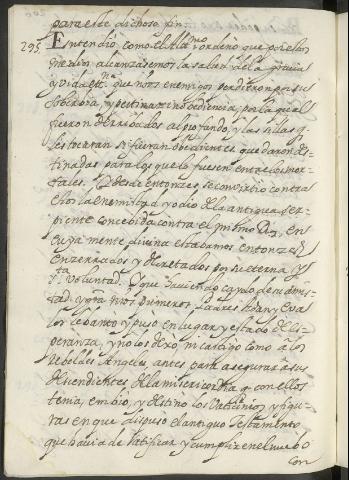 para este dichoso fin.
295. Entendio, como el Altmo. ordenó que por el ha
medio, alcanzasemos la salud de la gracia
y vida etna. que nros. enemigos perdieron por su
soberbia, y pertinaz inobediencia, por la qual
fueron derribados al profundo, y las sillas q
les tocaran si fueran obedientes quedaron des
tinadas para los que lo fuesen entre los mor
tales. Que desde entonzes se convirtio contra
ellos la enemistad, y odio de la antigua ser
piente concebida contra el mismo Dios, en
cuya mente divina estabamos entonzes
enzerrados y decretados por su eterna, y
sta. Voluntad. Y que haviendo caydo de su amis
tad, y gra. nros. primeros Padres Adan, y Eva
los lebantó y puso en lugar y estado de es
peranza, y no los dexó, ni castigo como à los
rebeldes Angeles, antes para asegurar à sus
descendientes de la misericordia q. con ellos
tenia, embio, y destino los Vaticinios y figu
ras en que dispuso el antiguo Testamento
que havia de ratificar y cumplir en el nuebo
con